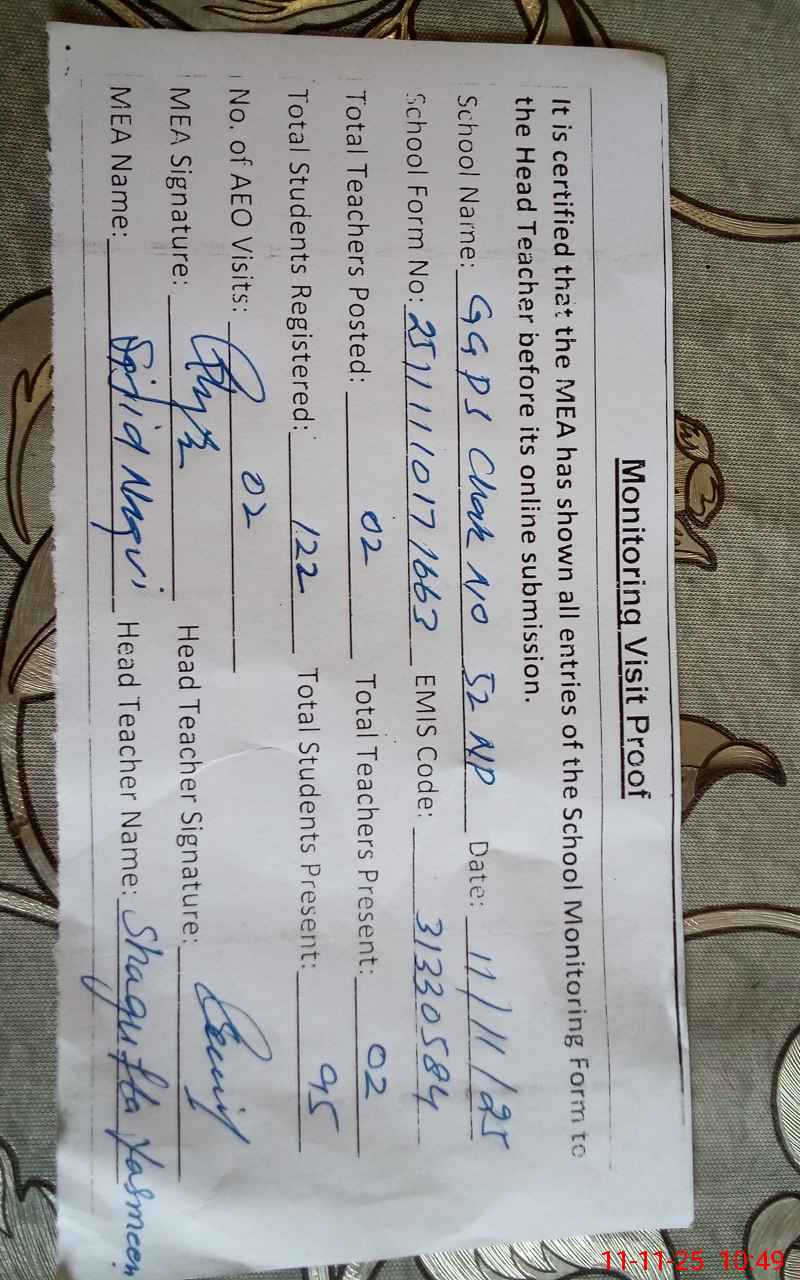 Monitoring Visit Proof
It is certified that the MEA has shown all entries of the School Monitoring Form to
the Head Teacher before its online submission.
School Name: GGPS Chak No 52 NP Date: 11/11/25
School Form No: 25111110171663 EMIS Code: 31330584
Total Teachers Posted: 02 Total Teachers Present: 02
Total Students Registered: 122 Total Students Present: 95
No. of AEO Visits: 02
MEA Signature: Head Teacher Signature:
MEA Name: Sajid Naqvi Head Teacher Name: Shagufta Yasmeen
11-11-25 10:49